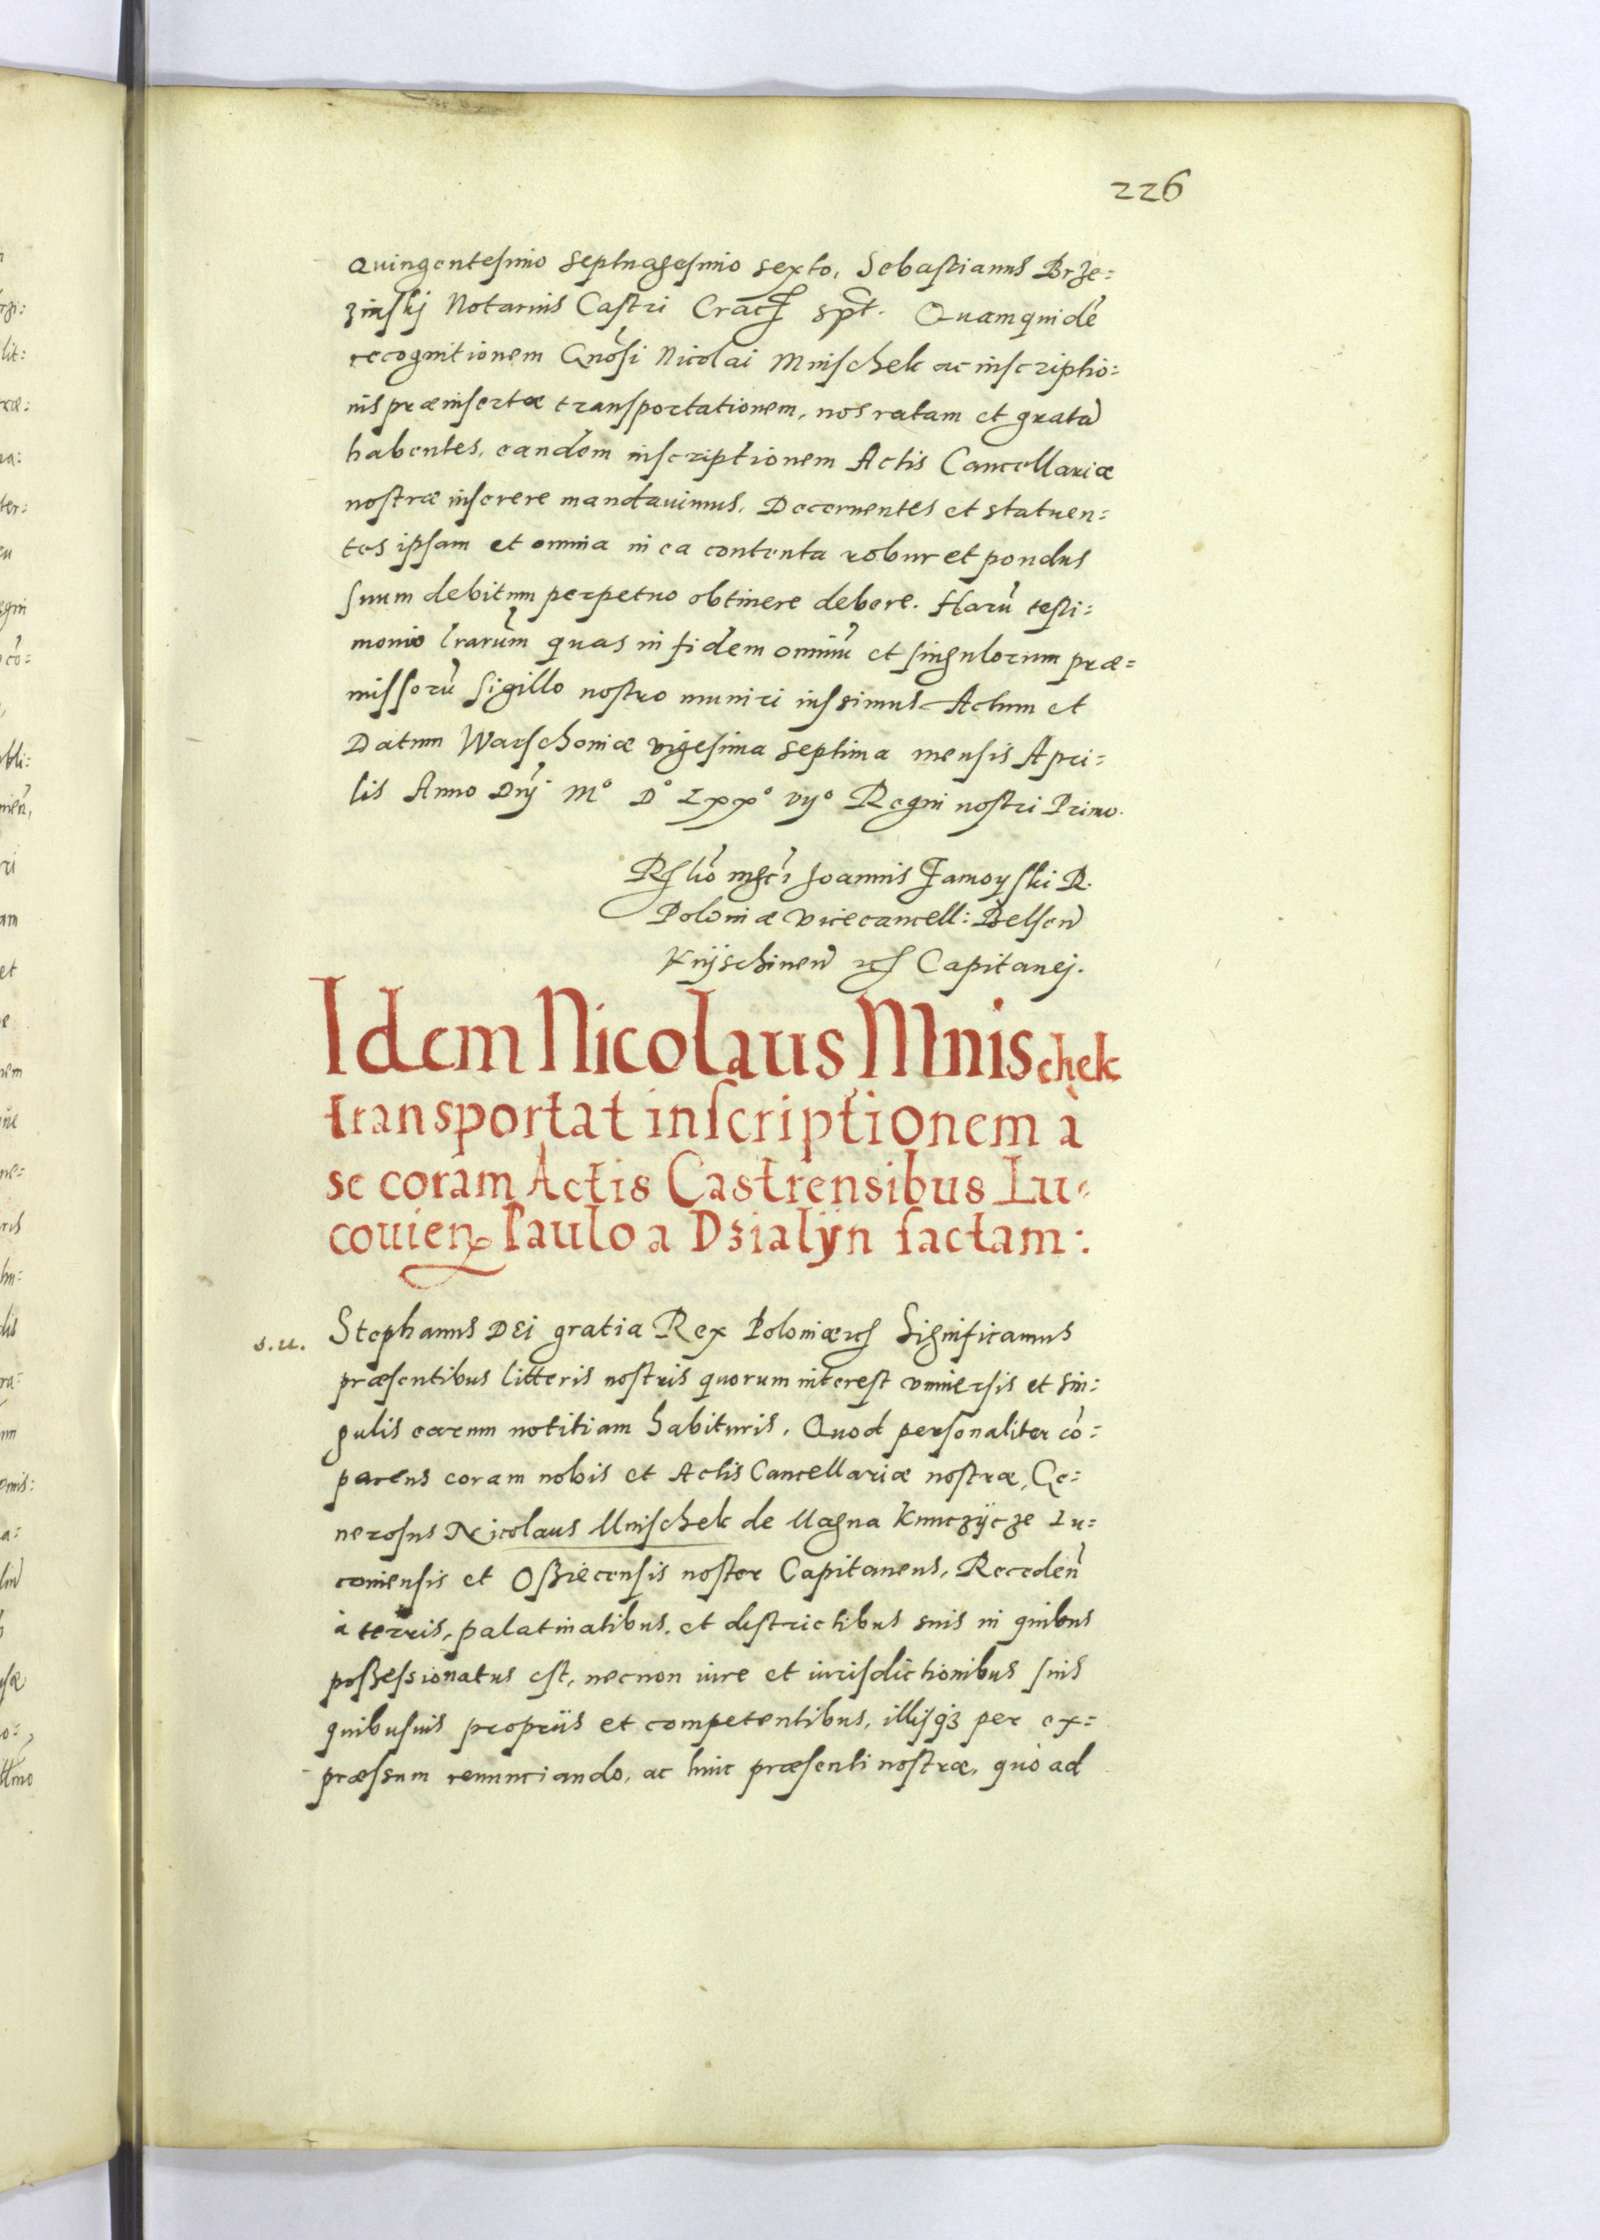 226
Quingentesimo Septuagesimo sexto, Sebastianus Brze=
zinskj Notarius Castri Crac spt. Quamquidē
recognitionem Gnōsi Nicolai Mnischek ac inscriptio=
nis præinsertæ transportationem, nos ratam et gratā
habentes, eandem inscriptionem Actis Cancellariæ
nostræ inserere mandauimus, Decernentes et statuen=
tes ipsam et omnia in ea contenta robur et pondus
suum debitum perpetuo obtinere debere. Harū testi=
monio lrarūm quas in fidem omniū et singulorum præ=
missorū sigillo nostro muniri iussimus Actum et
Datum Warschouiæ vigesima septima mensis Apri=
lis Anno Dnj Mº Dº Lxxº vijº Regni nostri Primo.
Joannis Zamoyski R.
Poloniæ Vicecancell: Belsen
Knyschinen Capitanej.
Idem Nicolaus Mnischek
transportat inscriptionem à
se coram Actis Castrensibus Lu=
couien Paulo a Dzialyn factam:
s. u. Stephanus DEi gratia Rex Poloniæ Significamus
præsentibus litteris nostris quorum interest vniuersis et sin=
gulis earum notitiam habituris, Quod personaliter cō=
parens coram nobis et Actis Cancellariæ nostræ, Ge=
nerosus Nicolaus Mnischek de Magna Kunczÿcze Lu=
couiensis et Oßiecensis noster Capitaneus, Receden
à terris, palatinatibus, et districtibus suis in quibus
poßessionatus est, necnon iure et iurisdictionibus suis
quibusuis proprijs et competentibus, illisqȝ per ex=
præssum renunciando, ac huic præsenti nostræ, quò ad